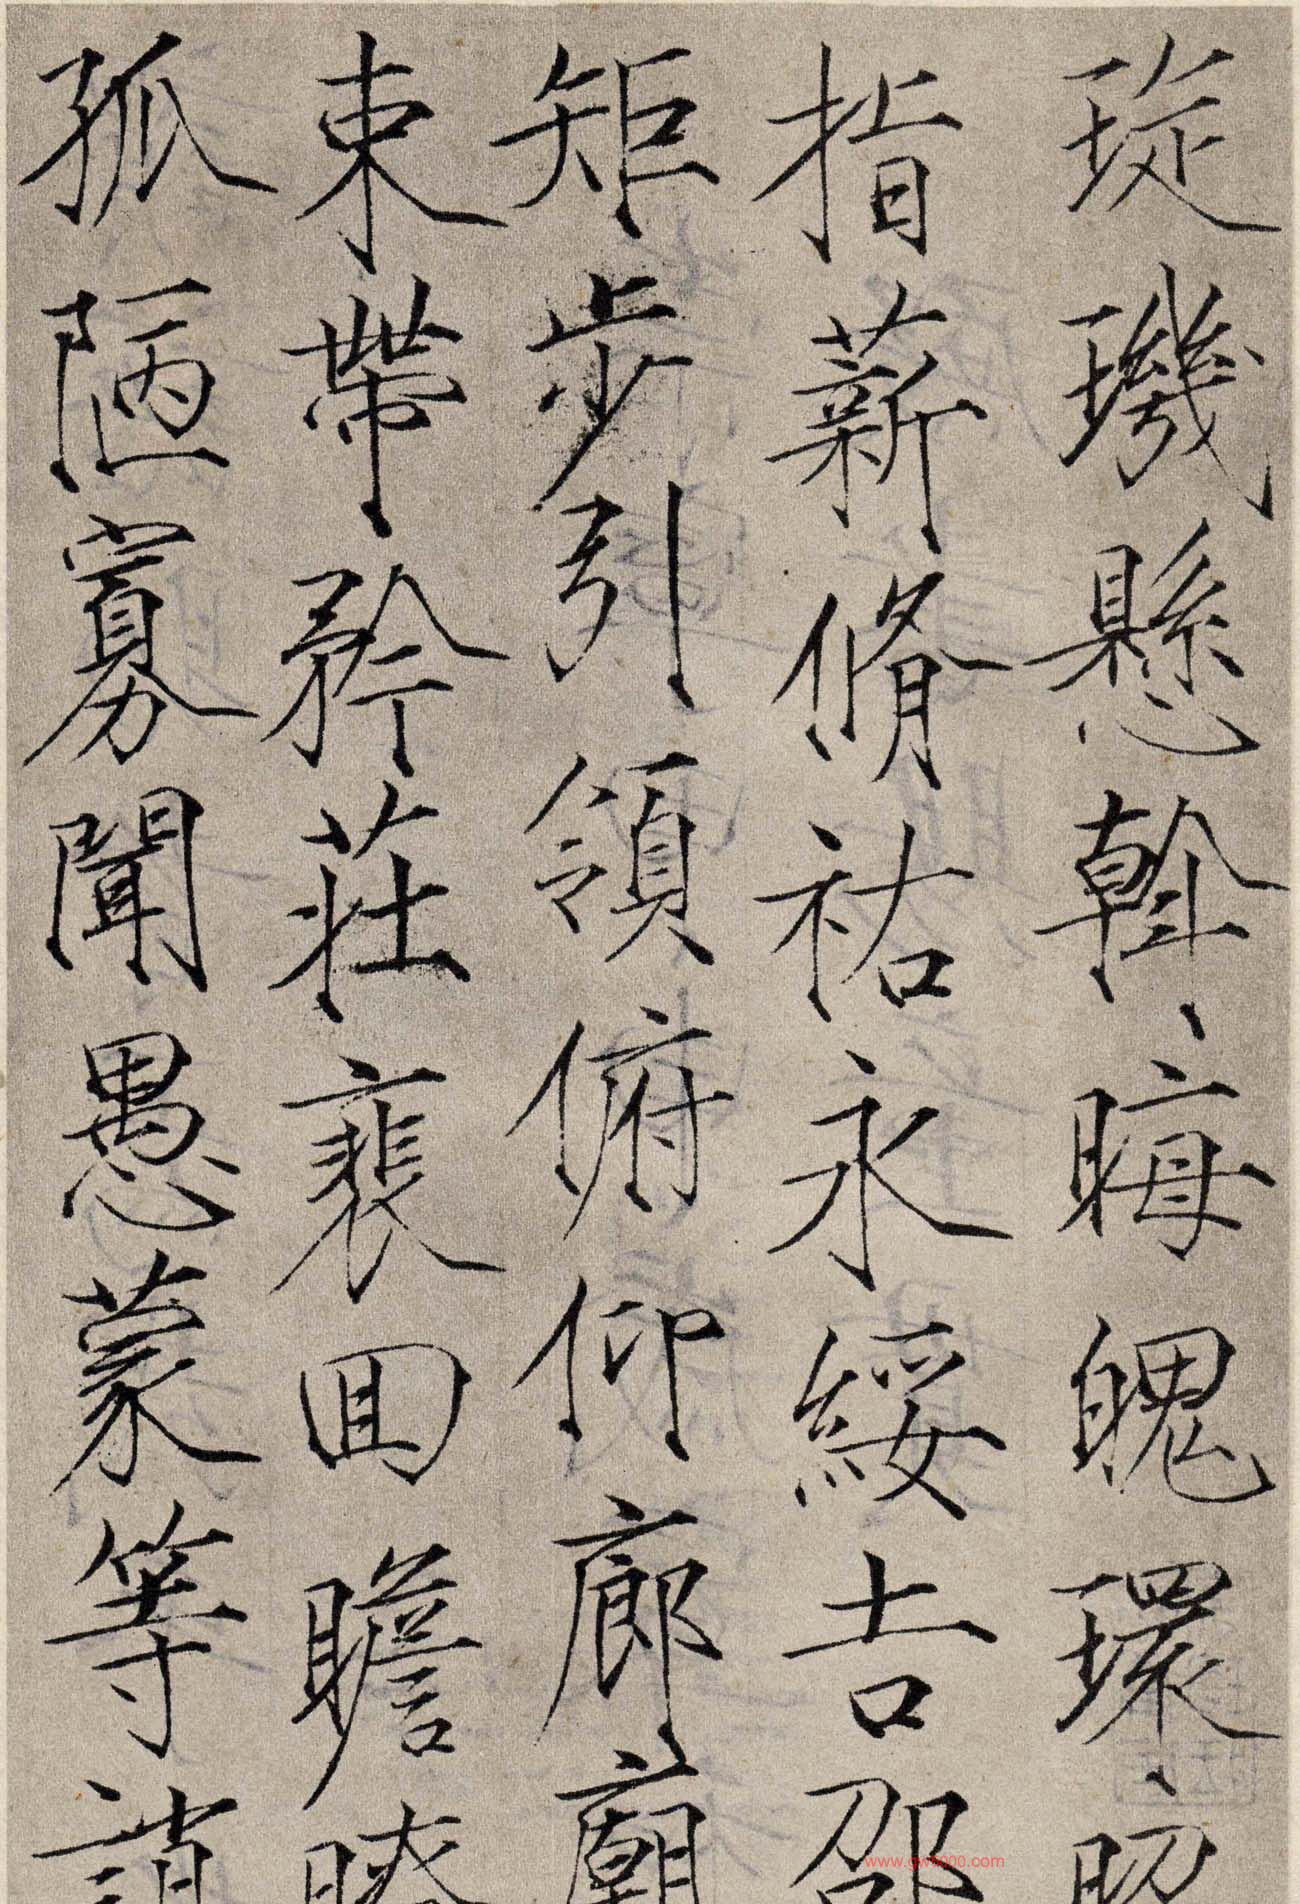 琁璣懸斡晦魄環照
指薪脩祜永綏吉邵
矩步引領俯仰廊廟
束帶矜莊裵回瞻眺
孤陋寡聞愚蒙等誚
www.gw5000.com